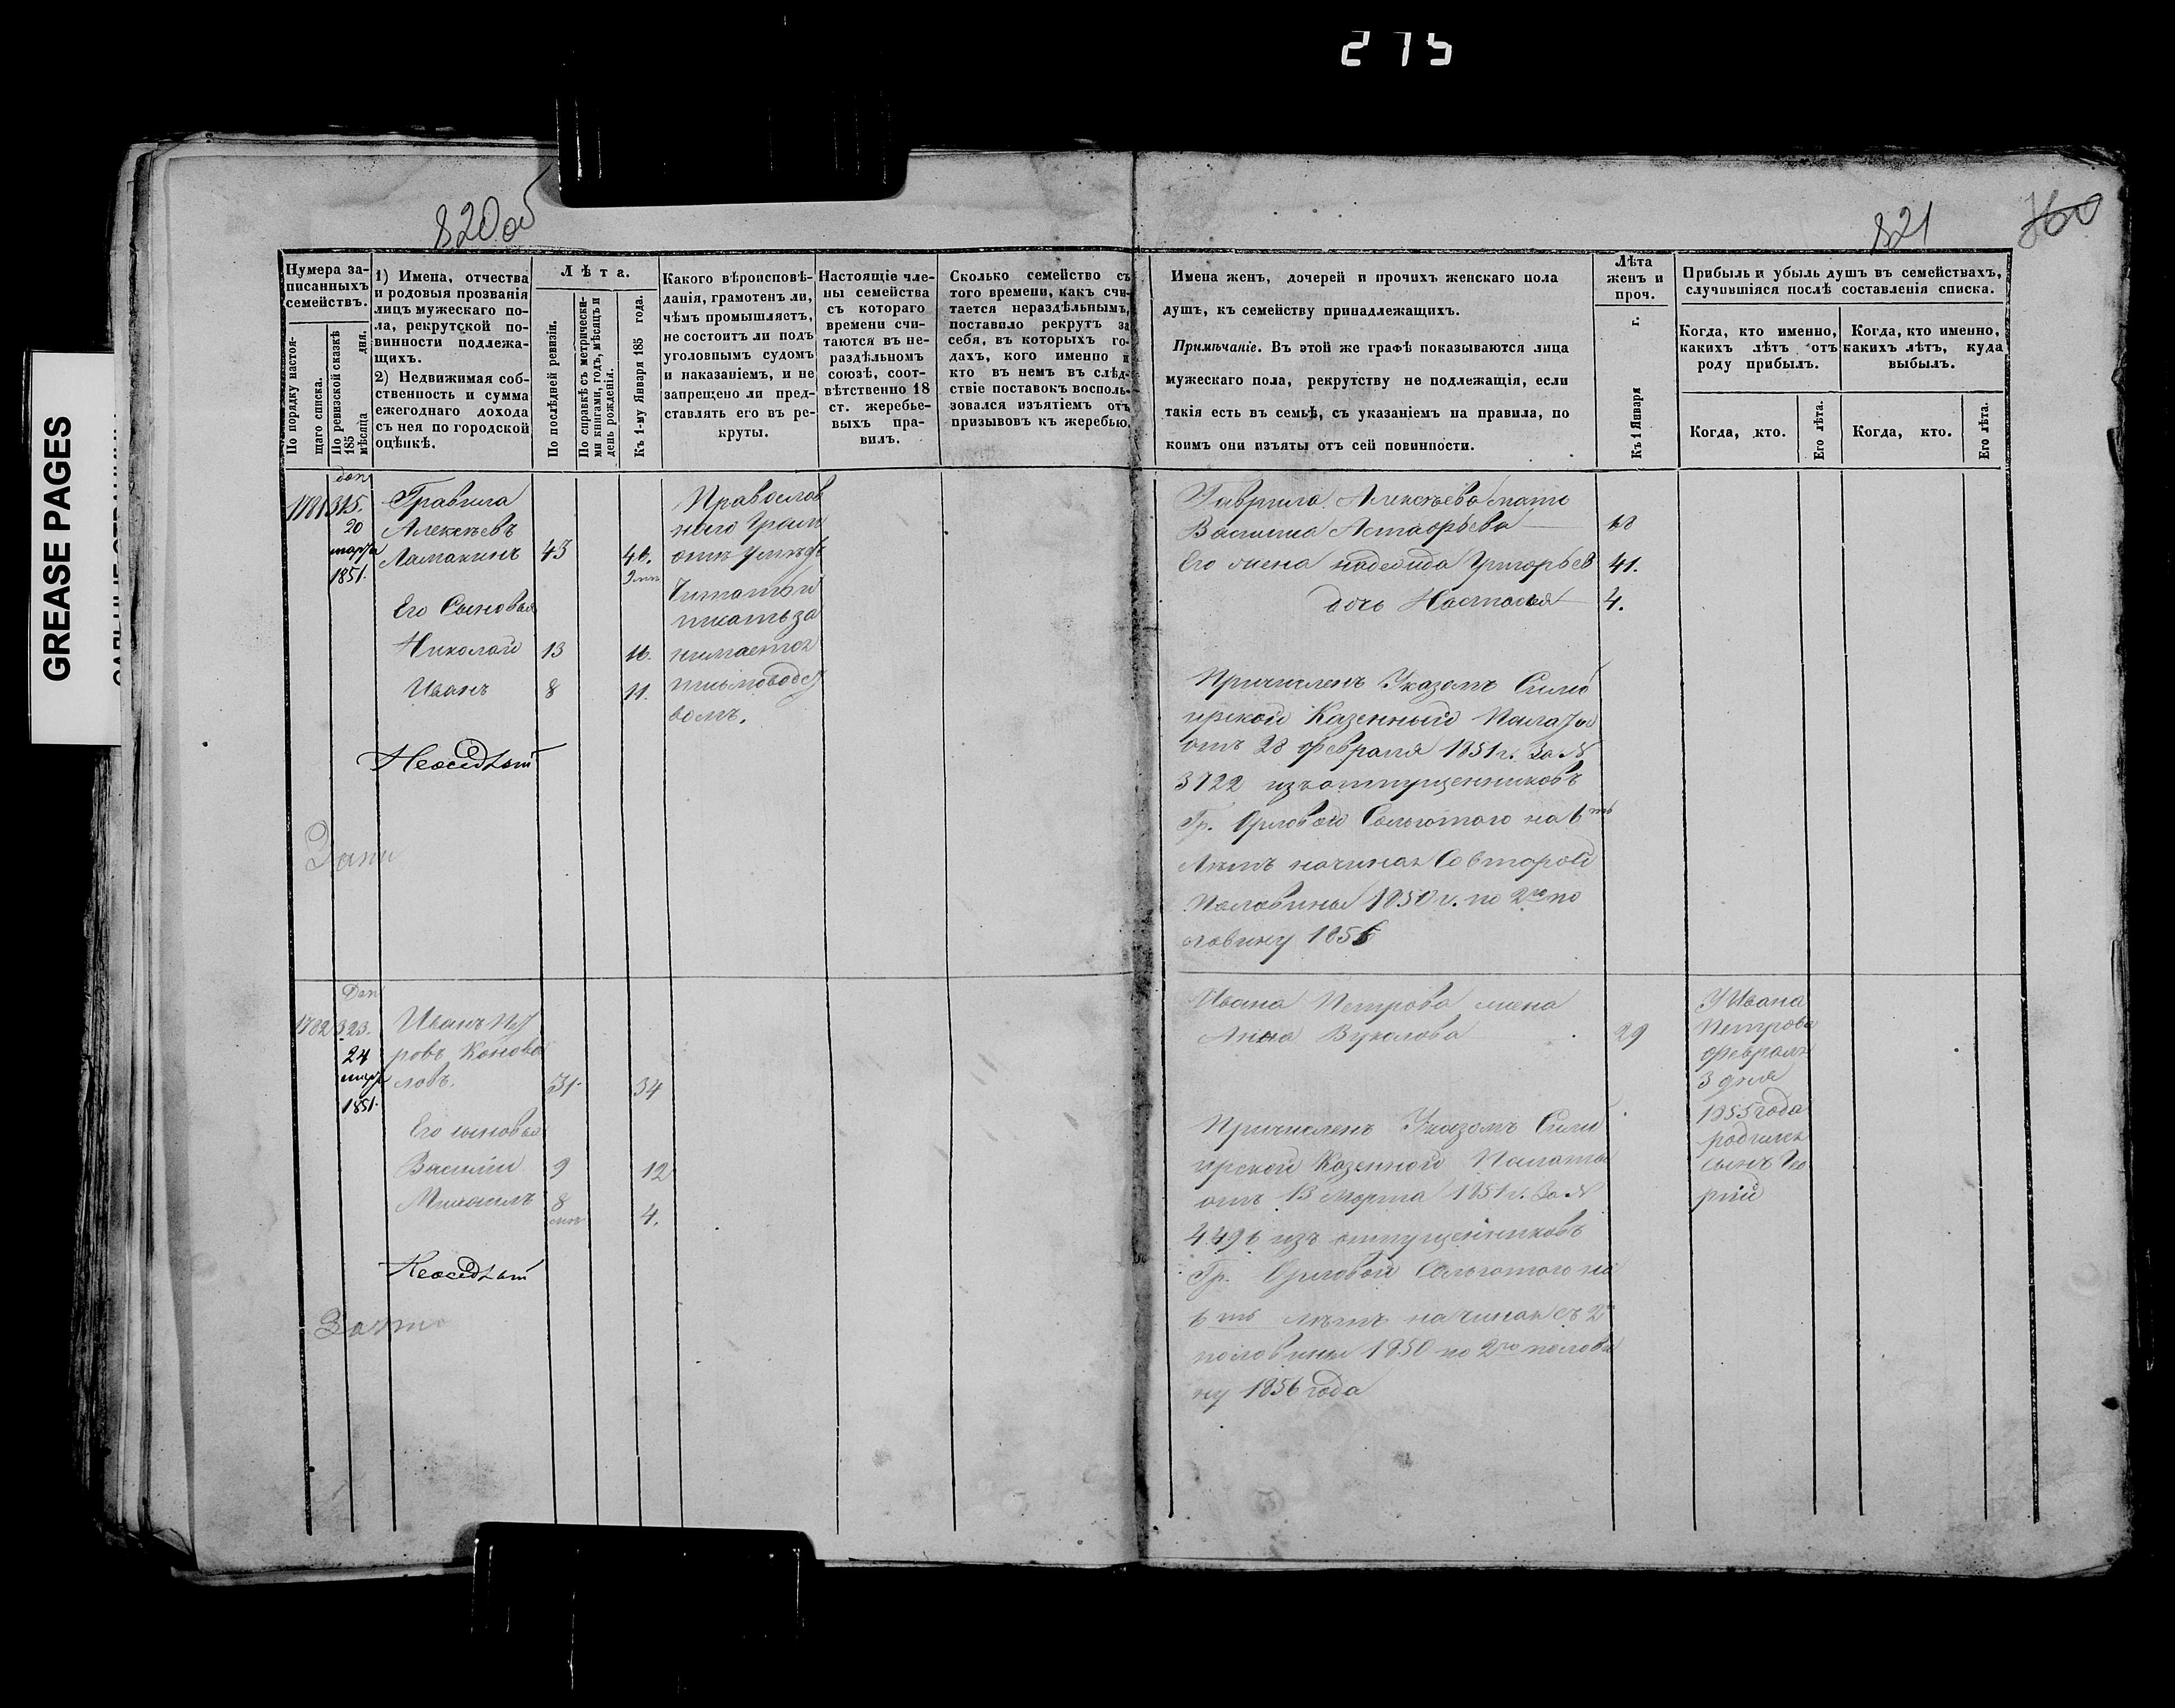 275
820об
821
GREASE PAGES
Нумера записанныхъ семействъ.
По порядку настоящаго списка.
По ревизской сказкѣ 185 мѣсяца дня.
1) Имена, отчества
и родовыя прозванія
лицъ мужескаго по-
ла, рекрутской по-
винности подлежа-
щихъ.
2) Недвижимая соб-
ственность и сумма
ежегоднаго дохода
съ нея по городской
оцѣнкѣ.
Лѣта.
По послѣдней ревизіи.
По справкѣ съ метрически-
ми книгами, годъ, мѣсяцъ и
день рожденія.
Къ 1-му Января 185 года.
Какого вѣроисповѣ-
данія, грамотенъ ли,
чѣмъ промышляетъ,
не состоитъ ли подъ
уголовнымъ судомъ
и наказаніемъ, и не
запрещено ли пред-
ставлять его въ ре-
круты.
Настоящіе чле-
ны семейства
съ котораго
времени счи-
таются въ не-
раздѣльномъ
союзѣ, соот-
вѣтственно 18
ст. жеребье-
выхъ пра-
вилъ.
Сколько семейство съ
того времени, какъ счи-
тается нераздѣльнымъ,
поставило рекрутъ за
себя, въ которыхъ го-
дахъ, кого именно и
кто въ немъ въ слѣд-
ствіе поставокъ восполь-
зовался изъятіемъ отъ
призывовъ къ жеребью.
Имена женъ, дочерей и прочихъ женскаго пола
душъ, къ семейству принадлежащихъ.
Примѣчаніе. Въ этой же графѣ показываются лица
мужескаго пола, рекрутству не подлежащія, если
такія есть въ семьѣ, съ указаніемъ на правила, по
коимъ они изъяты отъ сей повинности.
Лѣта
женъ и
проч.
Къ 1 Января г.
Прибыль и убыль душъ въ семействахъ,
случившіяся послѣ составленія списка.
Когда, кто именно,
какихъ лѣтъ отъ
роду прибылъ.
Когда, кто именно,
какихъ лѣтъ, куда
выбылъ.
Когда, кто.
Его лѣта.
Когда, кто.
Его лѣта.
доп
1781 315.
20
марта
1851.
Гравила
Алексѣевъ
Ламакинъ 43 46.
Его Сыновья
Николай 13 16.
Иванъ 8 11.
Неосѣдлый
Православ
наго Грам
отѣ умѣетъ
Читать и
писать за
нимается
письмоводст
вомъ.
Гаврила Алексѣева мать
Василиса Астафьева 68
Его жена надежда Григорьев 41.
дочь Настасья 4.
Причисленъ Указомъ Симб
ирской Казенный Палаты
отъ 28 февраля 1851 г. За №
3722 изъ отпущенниковъ
Гр. Орловой Сольготого на 6ть
Лѣтъ начиная Со второй
Половины 1850 г. по 2ю по
ловину 1856
Доп
1782 323.
24
марта
1851.
Иванъ Пет
ровъ Конова
ловъ. 31. 34
Его сыновья
Василій 9 12
Михаилъ 8 мѣс 4.
Неосѣдлый
Ивана Петрова жена
Анна Вуколова 29
Причисленъ Указомъ Симб
ирской Казенной Палаты
отъ 13 Марта 1851 г. За №
4496 изъ отпущенниковъ
Гр. Орловой Сольготого на
6ть лѣтъ начиная съ 2й
половины 1850 по 2ю полови
ну 1856 года
У Ивана
Петрова
февраля
3 дня
1855 года
родился
сынъ